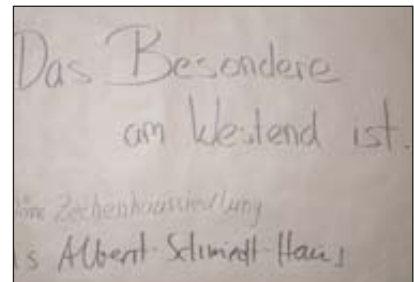 Das Besondere
am Westend ist.
Zechenhaussiedlung
s Albert-Schmidt-Haus